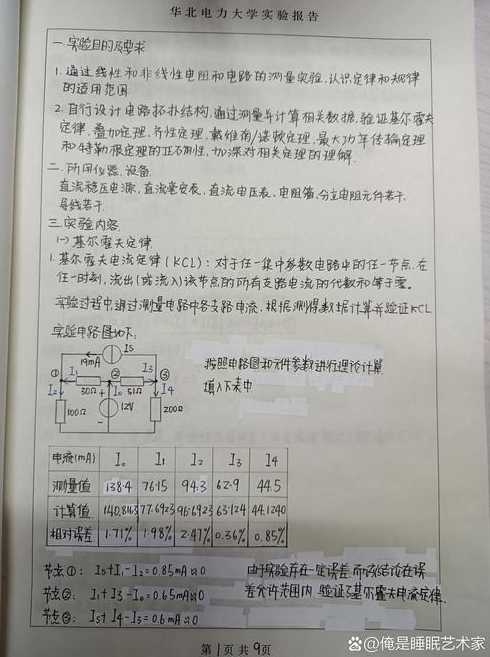 华北电力大学实验报告
一.实验目的及要求
1.通过线性和非线性电阻和电路的测量实验,认识定律和规律
的适用范围
2.自行设计电路拓扑结构,通过测量并计算相关数据,验证基尔霍夫
定律,叠加定理,齐性定理,戴维南/诺顿定理,最大功率传输定理
和特勒根定理的正确性,加深对相关定理的理解.
二.所用仪器、设备
直流稳压电源,直流毫安表,直流电压表,电阻箱,分立电阻元件若干
导线若干.
三.实验内容
(一)基尔霍夫定律
1.基尔霍夫电流定律(KCL):对于任一集中参数电路中的任一节点,在
任一时刻,流出(或流入)该节点的所有支路电流的代数和等于零。
实验过程中,通过测量电路中各支路电流,根据测得数据计算并验证KCL
实验电路图如下:
19mA Is
① I1 ② I3 ③
I2 30Ω + I0 51Ω I4
100Ω - 12V 200Ω
按照电路图和元件参数进行理论计算
填入下表中
电流(mA) I0 I1 I2 I3 I4
测量值 138.4 76.15 94.3 62.9 44.5
计算值 140.8163 77.6923 96.6923 63.124 44.1240
相对误差 1.71% 1.98% 2.47% 0.36% 0.85%
节点①: Is+I1-I2=0.85mA≈0
节点②: I1+I3-I0=0.65mA≈0
节点③: Is+I4-I3=0.6mA≈0
由于实验存在一定误差,而该结论在误
差允许范围内,验证了基尔霍夫电流定律.
第1页共9页
@俺是睡眠艺术家